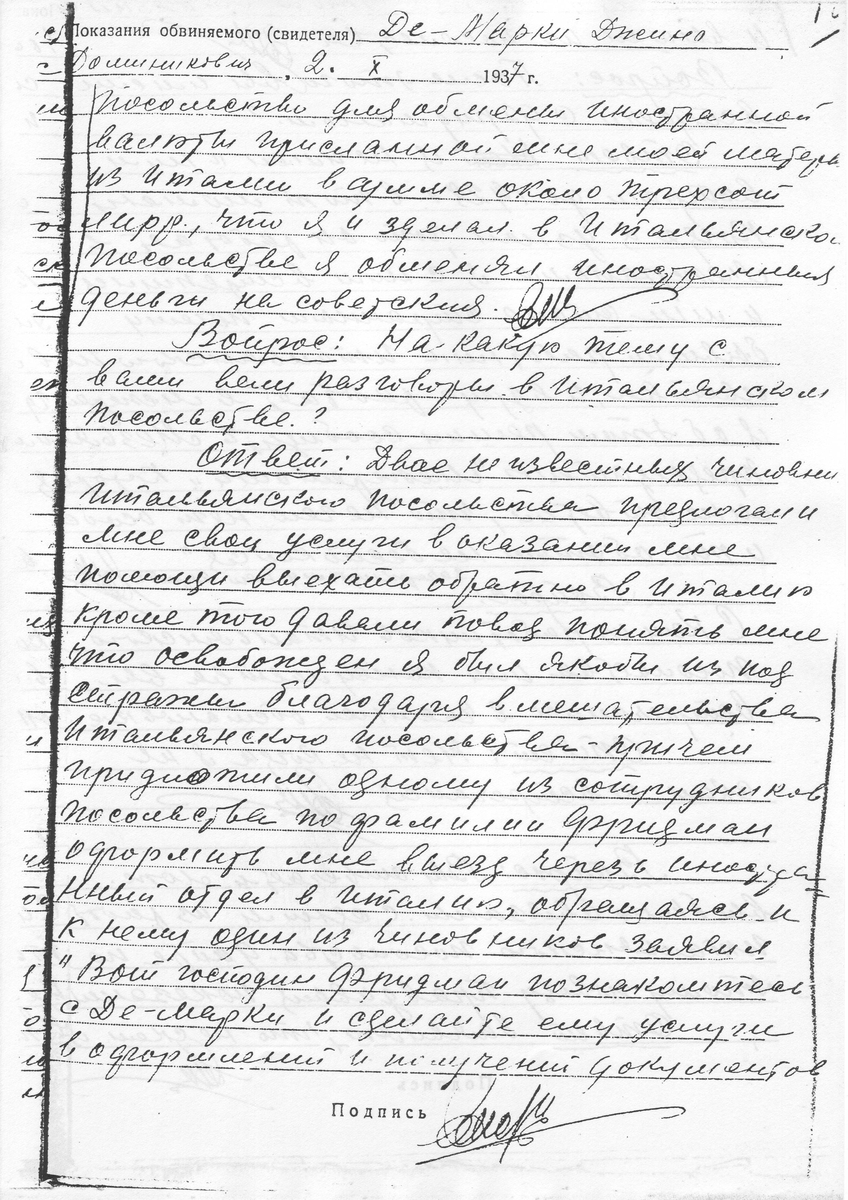 Показания обвиняемого (свидетеля) Де-Марки Джино
Доминикович, 2. X 1937 г.
посольство для обмены иностранной
валюты присланной мне моей матерью
из Италии в сумме около трехсот
лирр., что я и зделал. в Итальянском
посольстве я обменял иностранныя
деньги на советския.
Вопрос: На какую тему с
вами вели разговоры в Итальянском
посольстве?
Ответ: Двое неизвестных чиновни
Итальянского посольства предлогали
мне свои услуги в оказании мне
помощи выехать обратно в Италию
кроме того давали повод понять мне
что освобожден я был якобы из под
стражи благодаря вмешательства
Итальянского посольства - причем
придложили одному из сотрудников
посольства по фамилии Фридман
оформить мне выезд черезъ иностра=
нный отдел в Италию, обращаясь и
к нему один из чиновников заявил
"Вот господин Фридман познакомтесь
с Де-Марки и сделайте ему услуги
в оформлений и получений документов
Подпись